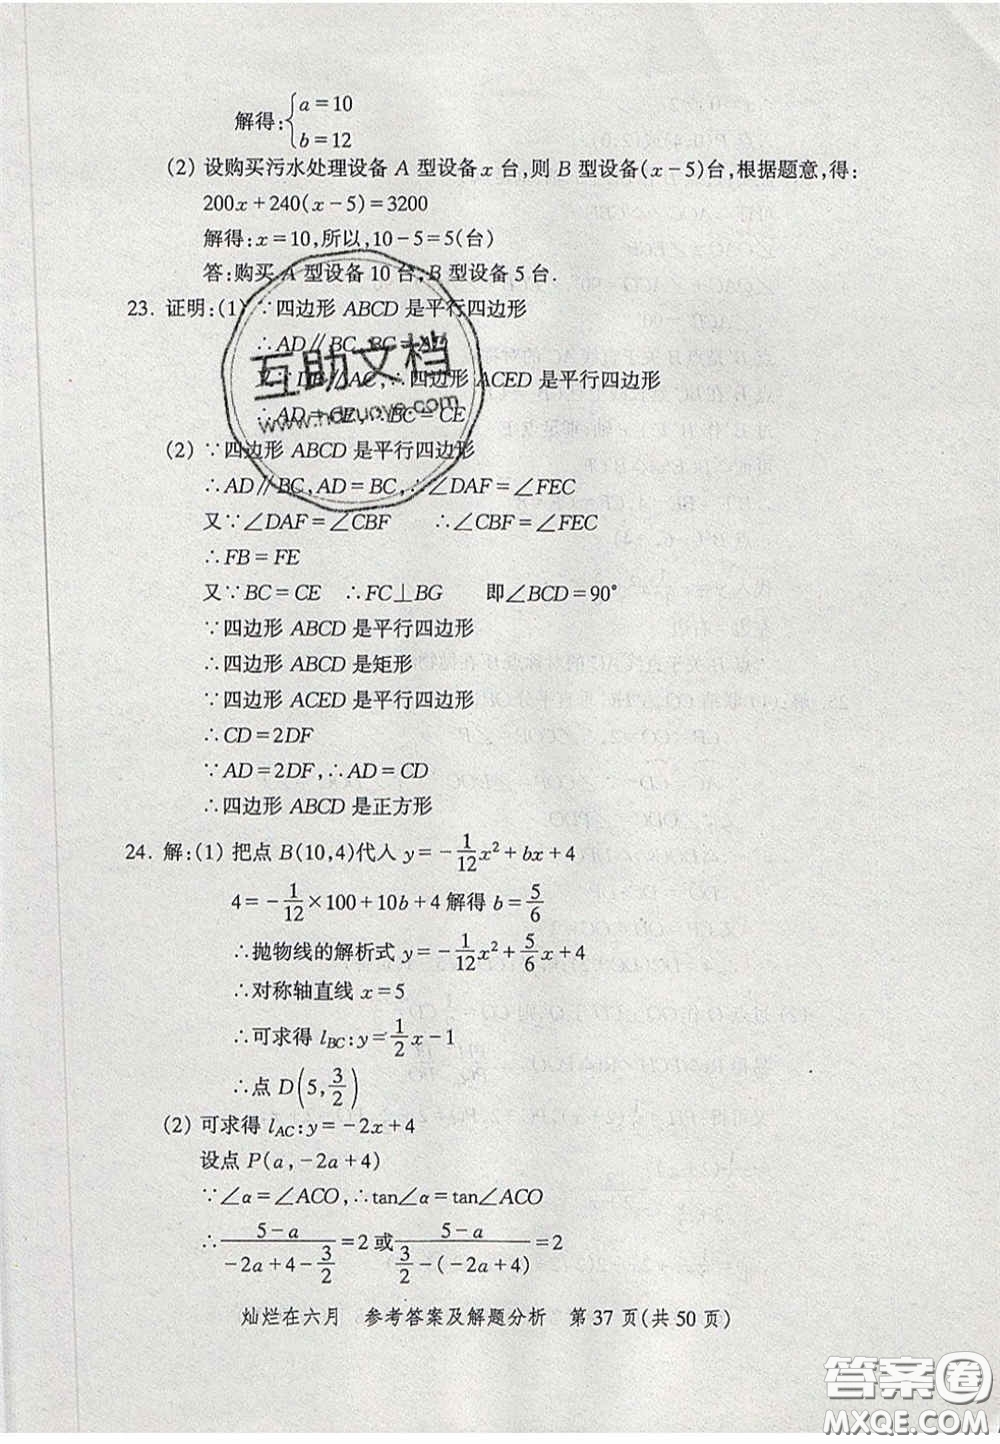 解得:{a=10
b=12
(2) 设购买污水处理设备 A 型设备 x 台,则 B 型设备(x-5)台,根据题意,得:
200x+240(x-5)=3200
解得:x=10,所以,10-5=5(台)
答:购买 A 型设备 10 台,B 型设备 5 台.
23. 证明:(1) ∵四边形 ABCD 是平行四边形
∴AD∥BC,BC=AD
又∵DE∥AC,∴四边形 ACED 是平行四边形
∴AD=CE,∴BC=CE
(2) ∵四边形 ABCD 是平行四边形
∴AD∥BC,AD=BC,∴∠DAF=∠FEC
又∵∠DAF=∠CBF ∴∠CBF=∠FEC
∴FB=FE
又∵BC=CE ∴FC⊥BG 即∠BCD=90°
∵四边形 ABCD 是平行四边形
∴四边形 ABCD 是矩形
∵四边形 ACED 是平行四边形
∴CD=2DF
∵AD=2DF,∴AD=CD
∴四边形 ABCD 是正方形
24. 解:(1) 把点 B(10,4)代入 y=-1/12x²+bx+4
4=-1/12×100+10b+4 解得 b=5/6
∴抛物线的解析式 y=-1/12x²+5/6x+4
∴对称轴直线 x=5
∴可求得 l_BC:y=1/2x-1
∴点 D(5,3/2)
(2) 可求得 l_AC:y=-2x+4
设点 P(a,-2a+4)
∵∠α=∠ACO,∴tan∠α=tan∠ACO
∴(5-a)/(-2a+4-3/2)=2 或 (5-a)/(3/2-(-2a+4))=2
灿烂在六月 参考答案及解题分析 第 37 页(共 50 页)
互助文档
www.hdzuoye.com
答案圈
MXQE.COM